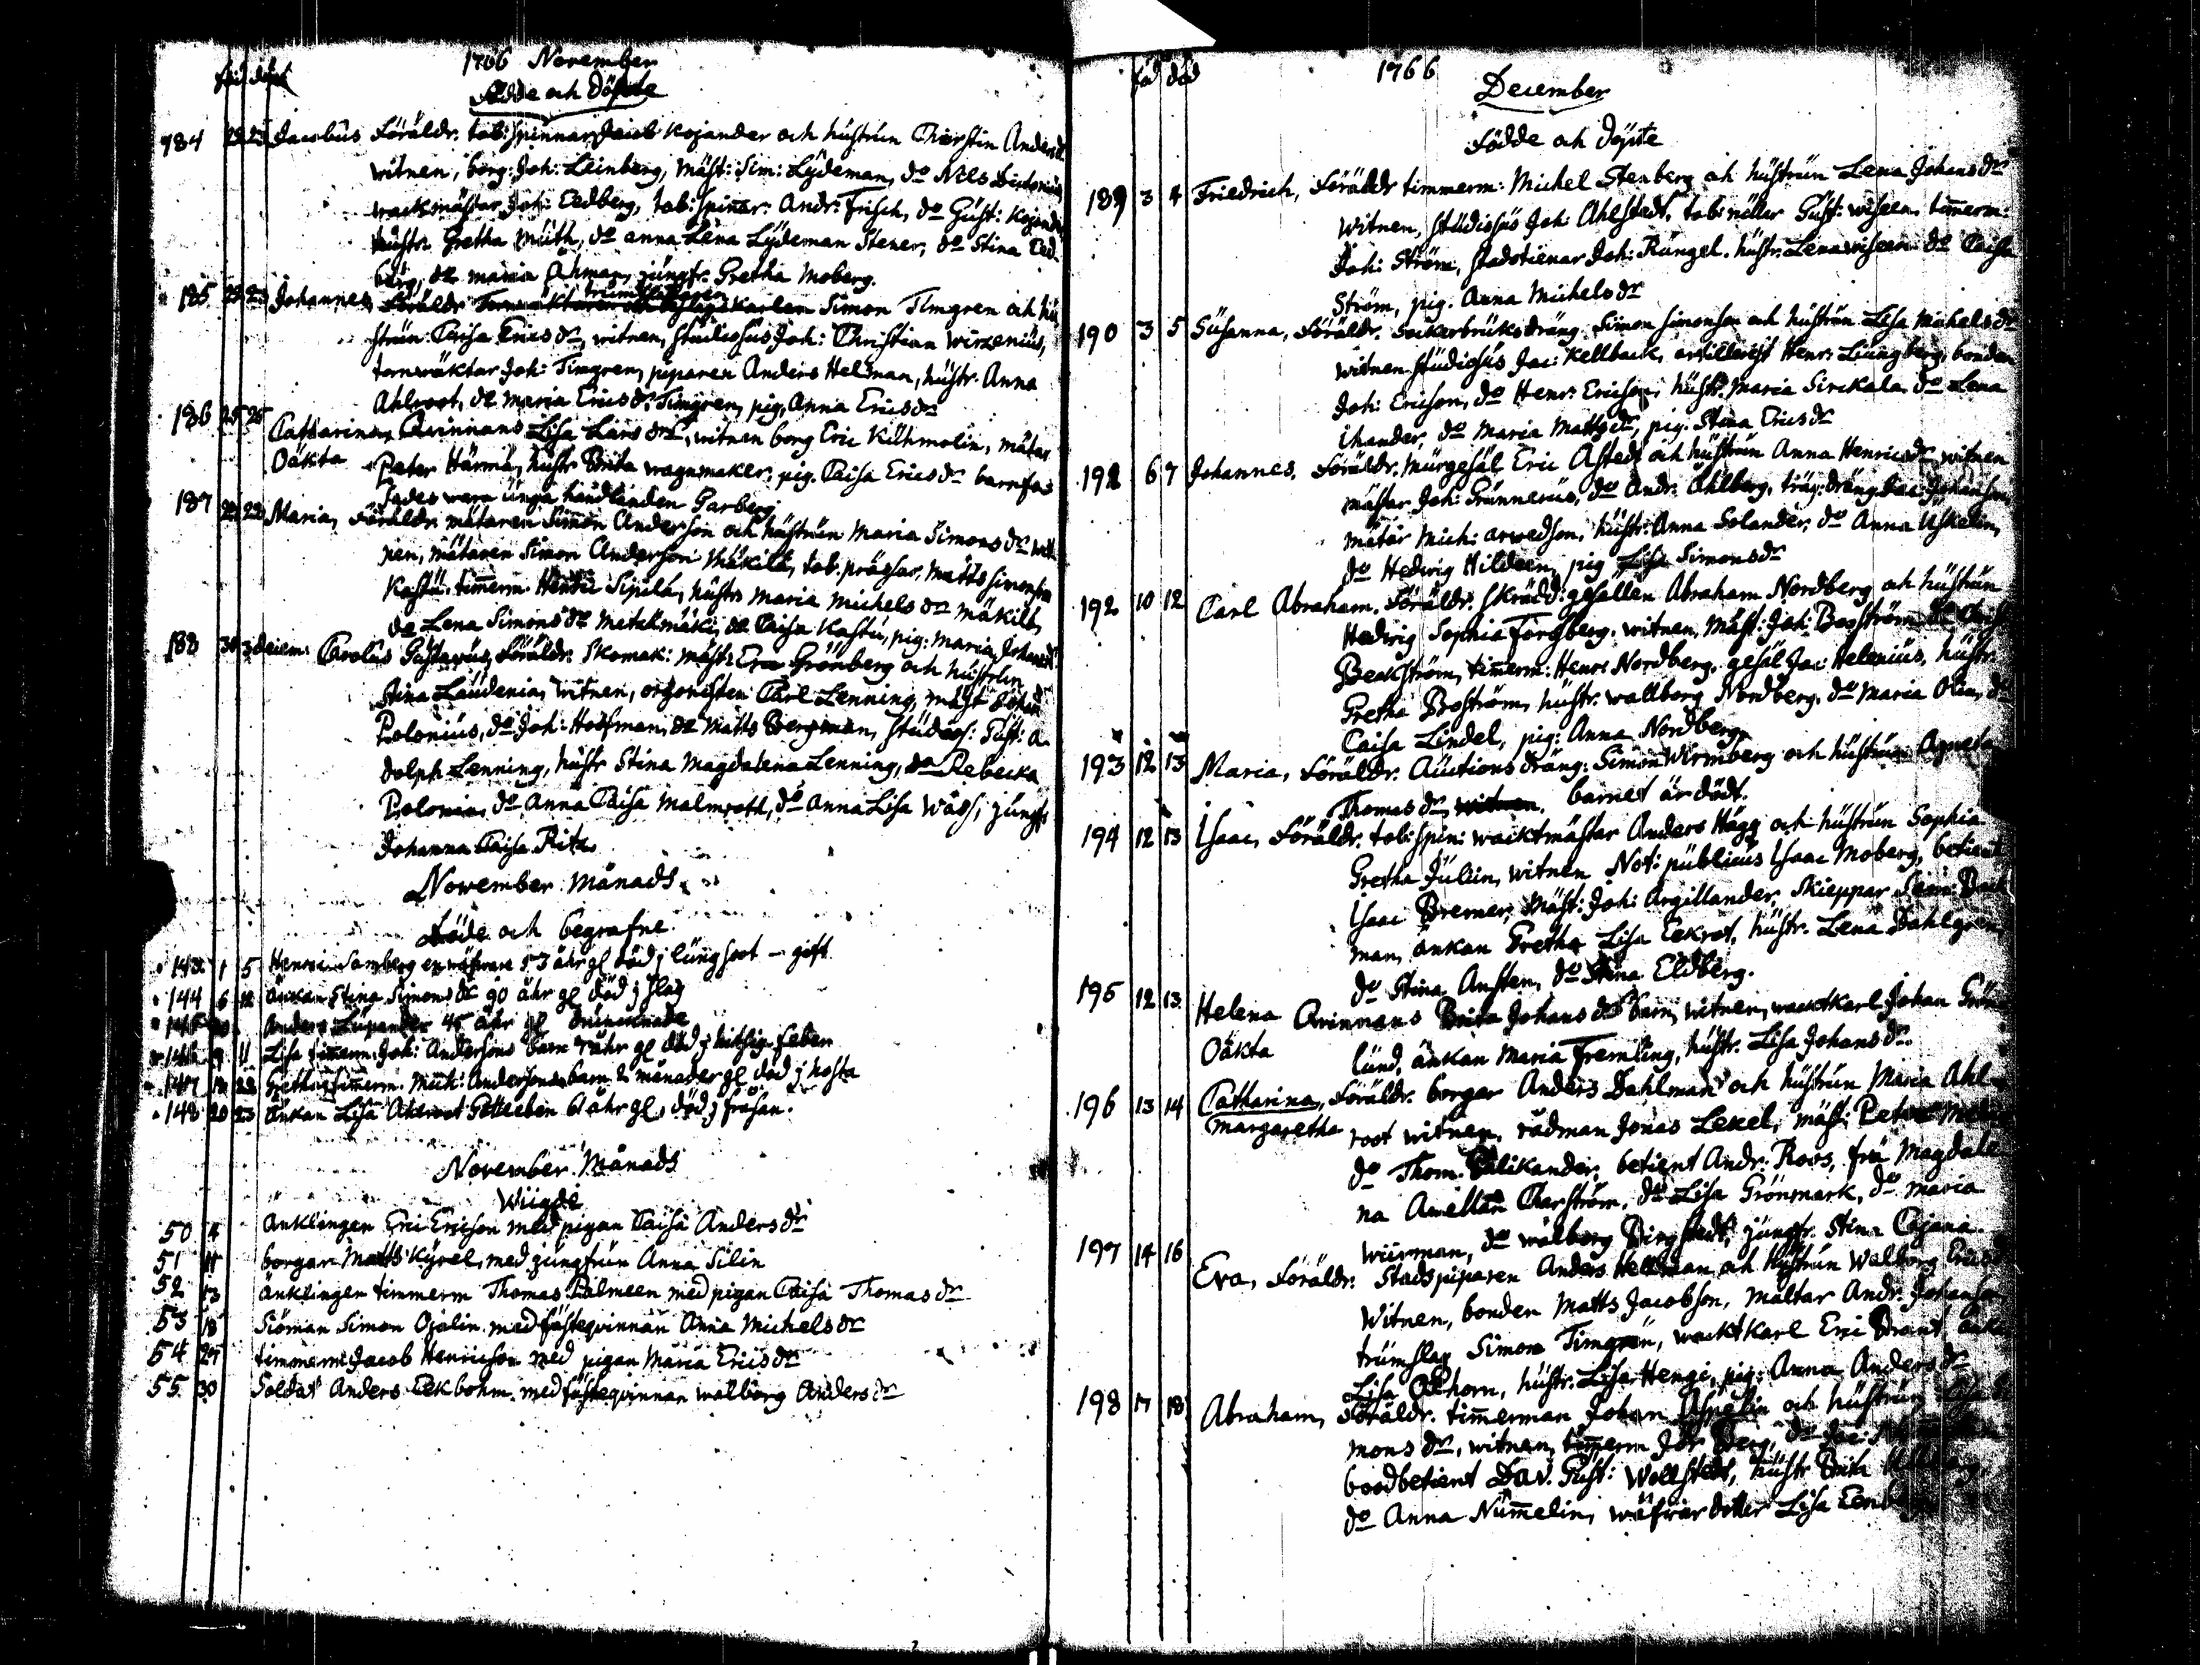 1766 November
föd döpt
Födde och Döpte
184 22 23 Jacobus Föräldr. tob: spinnar Jacob Kojander och hustrun Chierstin Andersdr
witnen, borg: Joh: Leinberg, mäst: Sim: Lydeman, do Nils Lictonius
wacktmästar Joh: Eedberg, tob: spinar: Andr: Frisch, do Gust: Kojander
hustr: Gretha Muth, do anna Lena Lydeman Stener, do Stina Eed-
berg, do maria Åhman, jungfr. Gretha Moberg.
185 22 23 Johannes, Föräldr trumslagar Simon Timgren och hu
strun Caisa Ericsdr, witnen, studiosus Joh: Christian Wirzenius,
tornwäktar Joh: Timgren, piparen Anders Helsman, hustr. Anna
Ahlroot, do maria Ericsdr Timgren, pig, Anna Ericsdr
186 25 25 Catharina, Qvinnans Lisa Larsdrs, witnen borg Eric Kilhmolin, mätar
Oäkta Peter Härmä, hustr Brita wagnmaker, pig. Caisa Ericsdr barnfas
fades wara unga handlanden Garberg
187 22 22 Maria, Föräldr mätaren Simon Anderson och hustrun Maria Simonsdr wit
nen, mätaren Simon Anderson Mäkilä, tob. prässar, Matts Simonson
Kastu. timerm. Henric Sipilä, hustr. maria Michelsdr mäkilä,
do Lena Simonsdr Metelmäki, do Caisa Kastu, pig: maria Johansdr
188 30 3 decem: Carolus Gustavus, Föräldr. Skomak: mäst: Eric Grönberg och hustrun
Stina Laudenia, witnen, organisten Carl Lenning, mäst Johan
Polonius, do Joh: Hoofman, do Matts Bergman, studios: Gust: A-
dolph Lenning, hustr Stina Magdalena Lenning, do Rebecka
Polonia, do Anna Caisa Malmroth, do Anna Lisa Wass, jungfr
Johanna Caisa Ritz.
November Månads
Döde och begrafne.
143 1 5 Henric Samberg en wäfware 53 åhr gl död j lungsoot – gift
144 6 12 änkan Stina Simonsdr 90 åhr gl död j slag
145 Anders Lupander 45 åhr gl druncknade
146 9 11 Lisa timerm. Joh: Andersons barn 7 åhr gl död j hitsig feber
147 22 Gretha timerm. Mich: Andersons barn 2 månader gl död j hosta
148 20 23 änkan Lisa Ahlroot Gottleben 61 åhr gl, död j frossan.
November Månads
Wiigde
50 4 Änklingen Eric Ericson med pigan Caisa Andersdr
51 11 borgar Matts Kyrel, med jungfrun Anna Silin
52 13 änklingen timmerm Thomas Palmeen med pigan Caisa Thomasdr
53 18 Siöman Simon Ojalin. med fästeqvinnan Anna Michelsdr
54 27 timmerm: Jacob Henricson med pigan Maria Ericsdr
55 30 Soldat Anders Eekbohm. med fästeqvinnan walborg Andersdr
1766
föd död
December
Födde och Döpte
189 3 4 Friedrich, Föräldr timmerm: Michel Stenberg och hustrun Lena Johansdr
Witnen, studiosus Joh: Ahlstedt, tob: rullar Gust: wiseen. timerm:
Joh: Ström, stadstienar Joh: Rungel. hustr: Lena wiseen do Caisa
Ström, pig. Anna Michelsdr
190 3 5 Susanna, Föräldr. Sockerbruksdräng. Simon Simonson och hustrun Lisa Michelsdr
witnen studiosus Jac: Kellback, artillerist Henr: Liungberg, bonden
Joh: Ericson, do Henr: Ericson, hustr. Maria Sirckala, do Lena
Ihander, do Maria Mattsdr, pig. Stina Ericsdr
191 6 7 Johannes. Föräldr. murgesäl Eric Astedt och hustrun Anna Henricsdr witnen
mästar Joh: Grunnerus, do Andr: Ahlberg, träg: dräng Jac: Johanson,
mätar Mich: arwedson, hustr: Anna Solander, do Anna Uskelin,
do Hedwig Hildeen, pig Lisa Simonsdr
192 10 12 Carl Abraham. Föräldr: Skrädd: gesällen Abraham Nordberg och hustrun
Hedwig Sophia Forsberg. witnen, Mäst: Joh: Boström do Christ
Beckström, timerm: Henr: Nordberg. gesäl Jac: Helenius, hustr:
Gretha Boström, hustr. wallborg Nordberg. do Maria Olin, do
Caisa Lindel, pig: Anna Nordberg.
193 12 13 Maria, Föräldr. Auctions dräng: Simon Wirmberg och hustrun Agneta
Thomasdr witnen. barnet är dödt.
194 12 13 Isaac, Föräldr. tob: spin: wacktmästar Anders Hägg och hustrun Sophia
Gretha Julin, witnen Not: publicus Isaac Moberg, betient
Isaac Bremer, Mäst: Joh: Argillander, Skieppar Back
man, änkan Gretha Lisa Eekrot, hustr. Lena Dahlgren
do Stina Ansten, do Stina Eldberg.
195 12 13 Helena Qvinnans Brita Johansdrs barn, witnen, wacktkarl Johan Grön
Oäkta lund, änkan Maria Fremling, hustr. Lisa Johansdr.
196 13 14 Catharina, Föräldr. borgar Anders Dahlman och hustrun Maria Ahl
Margaretha root witnen, rådman Jonas Lekel, mäst: Peter
do Thom. Palikander, betient Andr: Roos, fru Magdale
na Amellan Charström, do Lisa Grönmark, do Maria
Wiirman, do walborg Bergstedt, jungfr. Stina Cajana.
197 14 16 Eva, Föräldr: Stadspiparen Anders Hellsman och hustrun Walborg Ericsdr
Witnen, bonden Matts Jacobson, mältar Andr. Johanson
trumslag Simon Timgren, wacktkarl Eric Brant,
Lisa Alhorn, hustr. Lisa Henge, pig. Anna Andersdr
198 17 18 Abraham, Föräldr. timerman Johan Aspelin och hustrun
monsdr, witnen, timerm Jör: Berg, do Jac:
boodbetient Dav. Gust: Wellstedt, hustr Brita
do Anna Nummelin, wäfwar dotter Lisa